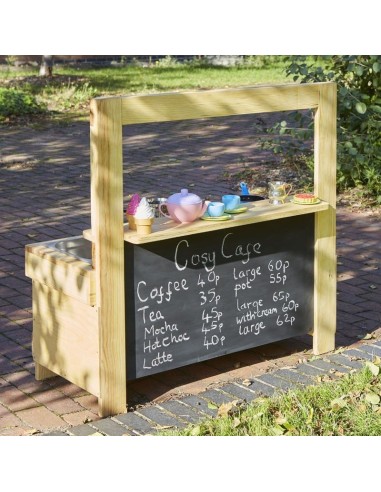 Cosy Cafe
Coffee 40p large 60p
Tea 35p pot 55p
Mocha 45p large 65p
Hot choc 45p with cream 60p
Latte 40p large 62p